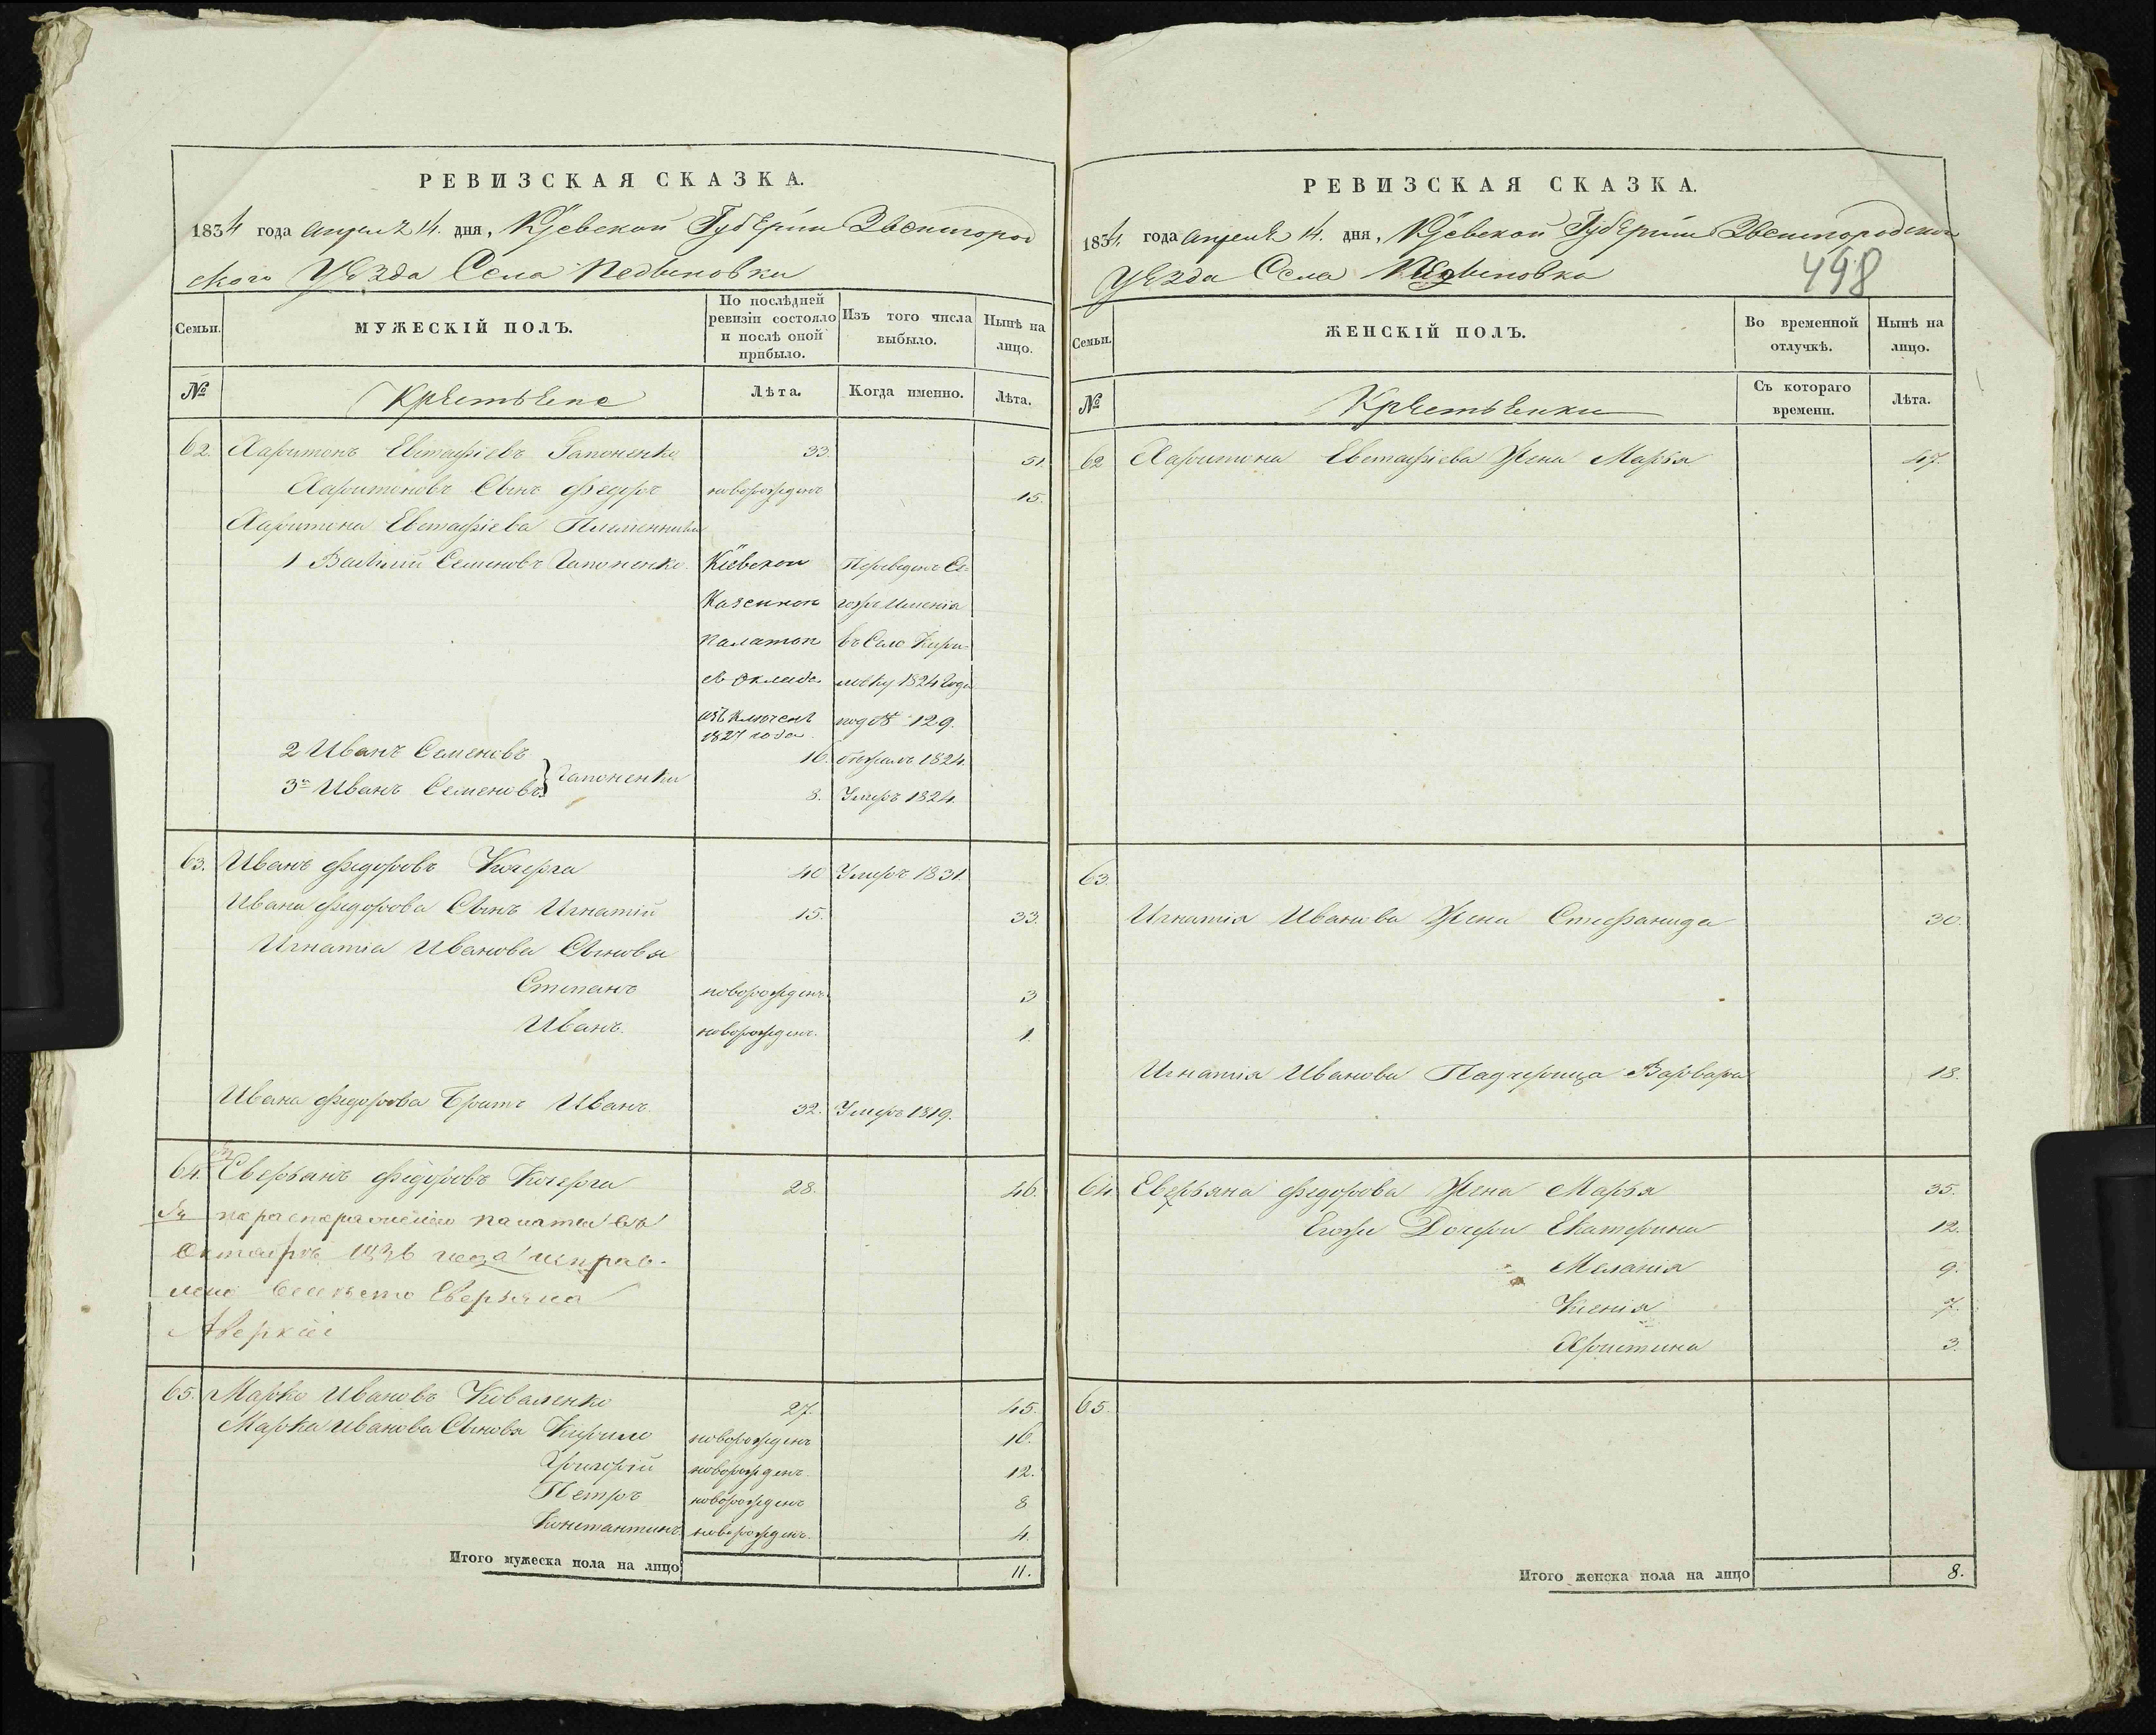 РЕВИЗСКАЯ СКАЗКА.
1834 года апреля 14. дня, Кіевской Губерніи Звенигород
ского Уѣзда Села Педыновки
Семьи.
МУЖЕСКІЙ ПОЛЪ.
По послѣдней ревизіи состояло и послѣ оной прибыло.
Изъ того числа выбыло.
Нынѣ на лицо.
№
Крестьяне
Лѣта.
Когда именно.
Лѣта.
62. Харитонъ Евстафіевъ Гапоненко 33. 51.
Харитоновъ Сынъ Федоръ новорожденъ 15.
Харитона Евстафіева Племянники
1 Василий Семеновъ Гапоненко Кіевской Переведенъ Се-
Казенной гожъ имения
Палатой въ Село Кири-
съ оклада ловку 1824 года
изъключенъ под № 129.
1827 года
2 Иванъ Семеновъ 16. бежалъ 1824.
3й Иванъ Семеновъ } Гапоненки 8. Умеръ 1824.
63. Иванъ Федоровъ Кочерга 40 Умеръ 1831.
Ивана Федорова Сынъ Игнатій 15. 33.
Игнатіа Иванова Сыновья
Степанъ новорожденъ 3
Иванъ. новорожденъ. 1.
Ивана Федорова Братъ Иванъ. 32. Умеръ 1819.
64. Еверьянъ Федоровъ Кочерга 28. 46.
по палаты въ
Октябрѣ 1836 года исправ-
лено вместо Еверьяна
Аверкій
65. Марко Ивановъ Коваленко 27. 45.
Марка Иванова Сыновья Кирило новорожденъ 16.
Григорій новорожденъ. 12.
Петръ новорожденъ 8
Константинъ новорожденъ. 4.
Итого мужеска пола на лицо 11.
РЕВИЗСКАЯ СКАЗКА.
1834. года апреля 14. дня, Кіевской Губерніи Звенигородского
Уѣзда Села Педыновка
498
Семьи.
ЖЕНСКІЙ ПОЛЪ.
Во временной отлучкѣ.
Нынѣ на лицо.
№
Крестьянки
Съ котораго времени.
Лѣта.
62 Харитона Евстафіева Жена Марья 47.
63.
Игнатія Иванова Жена Стефанида 30.
Игнатія Иванова Падчерица Варвара 18.
64 Еверьяна Федорова Жена Марья 35.
Егожъ Дочери Екатерина 12.
Меланія 9.
Ксенія 7.
Христина 3.
65.
Итого женска пола на лицо 8.